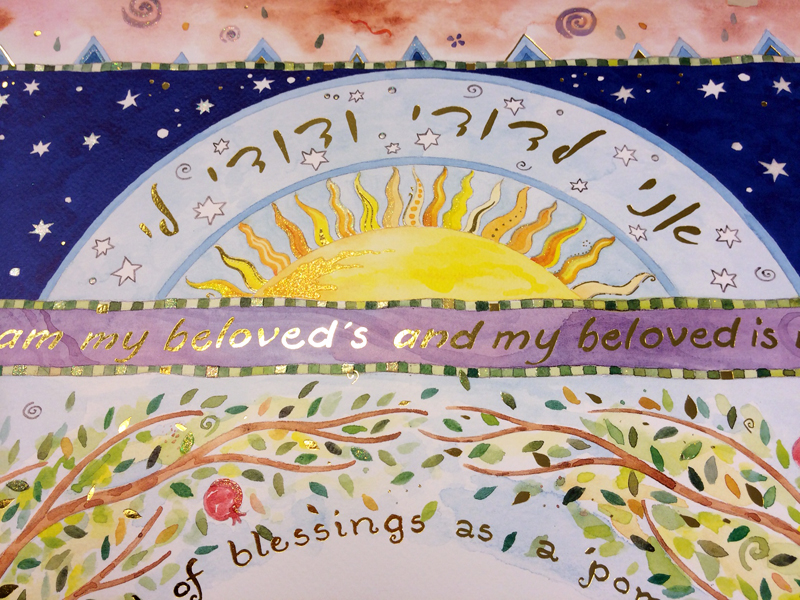 אני לדודי ודודי לי
am my beloved's and my beloved is
of blessings as a